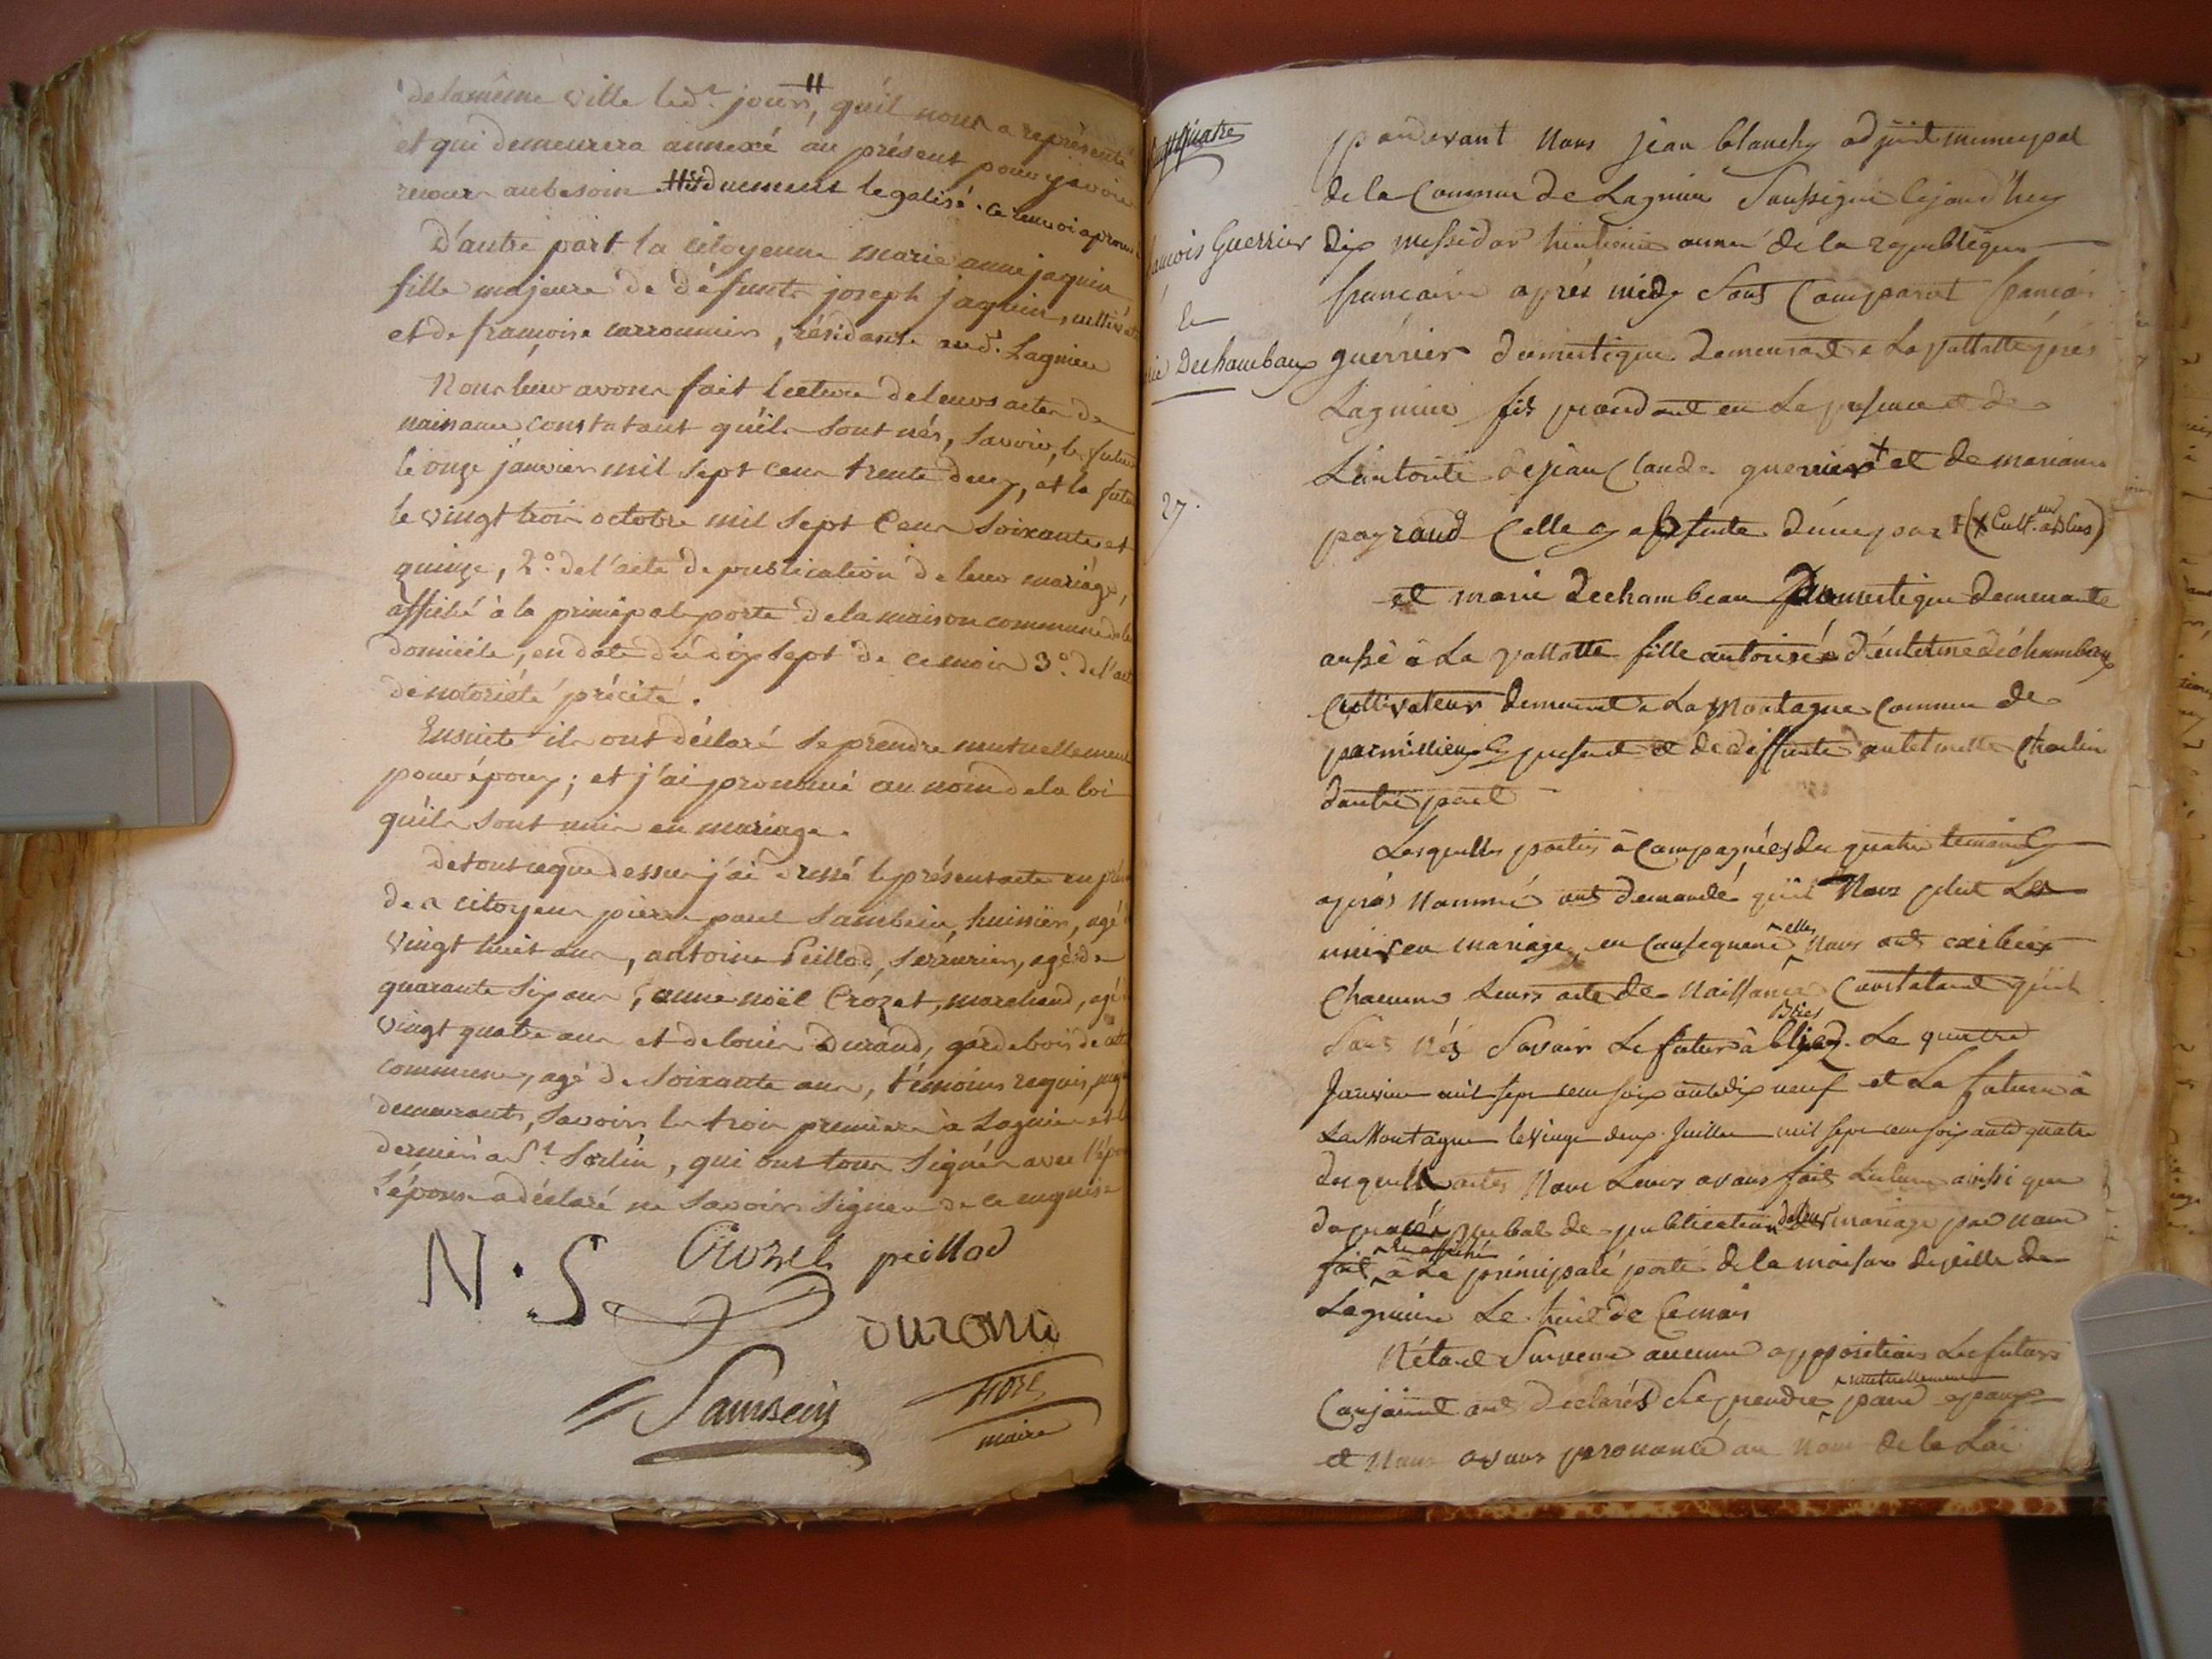 de la même ville led.t jour, qu'il nous a représenté
et qui demeurera annexé au présent pour y avoir
recours au besoin. duement legalisé. ce renvoi aprouvé
D'autre part la citoyenne marie anne jaquin
fille majeure de défunts joseph jaquin, cultivat
et de françoise carronnier, résidante aud.t Lagnieu
Nous leur avons fait lecture de leurs actes de
naissance constatant qu'ils sont nés, savoir, le futur
le onze janvier mil sept cens trente deux, et la future
le vingt trois octobre mil sept Cens soixante et
quinze, 2.o de l'acte de publication de leur mariage,
affiché à la principale porte de la maison commune de le
domicile, en date du dix sept de ce mois 3.o de l'act
de notoriété précité.
Ensuite ils ont déclaré se prendre mutuellement
pour époux; et j'ai prononcé au nom de la loi
qu'ils sont unis en mariage.
de tout ce que dessus j'ai dressé le présent acte en prés
des citoyens pierre paul Sambein, huissier, agé
vingt huit ans, antoine Peillod, serrurier, agé de
quarante six ans, anne noël Crozet, marchand, agé
vingt quatre ans et de louis Durand, garde bois de cette
commune, agé de soixante ans, témoins requis,
demeurants, savoir les trois premiers à Lagnieu et le
dernier à S.t Sorlin, qui ont tous signés avec l'ép
l'épouse a déclaré ne savoir signer de ce enquise
N. S Crozet peillod
durand
Sambein
maire
vingt quatre
françois Guerrier
et
marie Dechambaux
27.
pardevant Nous jean blanchy adjoint municipal
de la Commune de Lagnieu Soussigné cejourd'huy
dix messidor huitieme année de la république
francaise après midy Sont Comparut francois
guerrier domestique demeurant a La vallatte près
Lagnieu fils procedant en la presence et de
L'autorité de jean Claude guerrier + et de mariane
payrand Celle cy deffunte d'une part + (X Cult.ur a Blies)
et marie dechambeau Domestique demeurante
aussi à La vallatte fille autorisée d'entelme déchambeau
Cultivateur demeurant a La Montagne Commune de
parmillieu Cy present et de deffunte antelmette Charlin
d'autre part
Lesquelles parties accompagnées des quatre temoins Cy
après Nommé ont demandé qu'il Nous plut Les
unir en mariage, en Consequence elles Nous ont exibées
Chacune Leurs acte de Naissance Constatant qu'ils
Sont Nés Savoir Le futur à bliez Blies Le quatre
Janvier mil sept cens soixante dix neuf et La future à
La Montagne le vingt deux Juillet mil sept cens soixante quatre
desquells actes Nous Leurs avons fait Lecture ainsi que
du procés verbal de publication de leur mariage par nous
fait et affiché à La principale porte de la maison de ville de
Lagnieu Le huit de Ce mois
N'étant Survenu aucune opposition Les futurs
Conjoint ont déclarés Se prendre mutuellement pour epoux
et Nous avons prononcé au Nom de la Loi